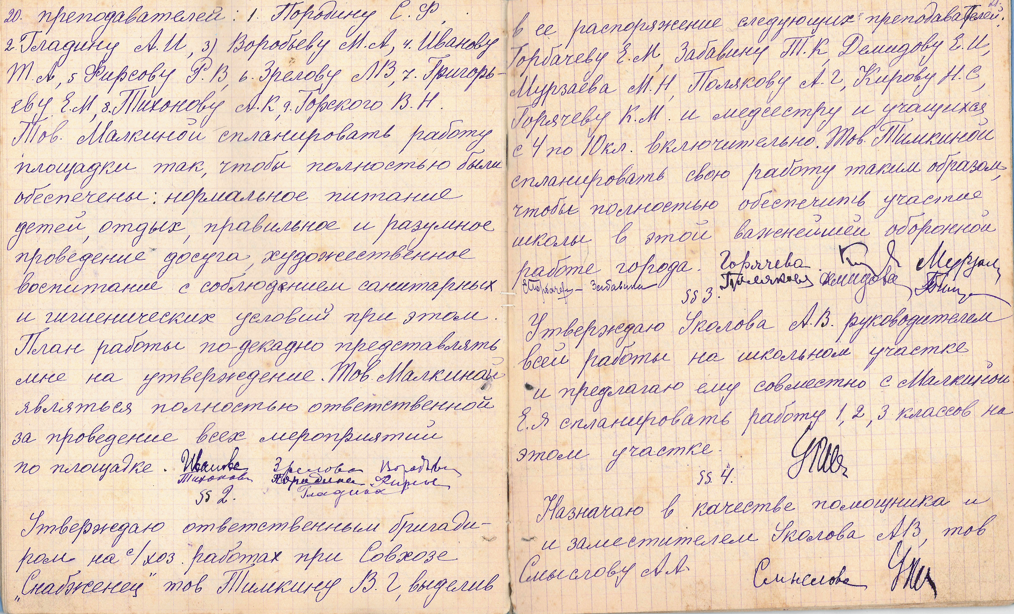 20. преподавателей: 1. Породину С.Ф.,
2 Гладину А.И, 3) Воробьеву М.А, 4. Иванову
Т.А, 5 Фирсову Р.В, 6. Зрелову Л.В, 7. Григорь-
еву Е.М, 8. Тихонову А.К, 9. Горского В.Н.
Тов. Малкиной спланировать работу
площадки так, чтобы полностью были
обеспечены: нормальное питание
детей, отдых, правильное и разумное
проведение досуга, художественное
воспитание с соблюдением санитарных
и гигиенических условий при этом.
План работы по-декадно представлять
мне на утверждение. Тов Малкиной
являться полностью ответственной
за проведение всех мероприятий
по площадке. Иванова Зрелова Воробьев
Тихонова Породина Фирс
Гладина
§§ 2.
Утверждаю ответственным бригади-
ром на с/хоз. работах при Совхозе
"Снабженец" тов Тимкину В.Г, выделив
в ее распоряжение следующих преподавателей:
Горбачеву Е.М, Забавину Т.К, Демидову Е.И,
Мурзаева М.Н, Полякову А.Г, Кирову Н.С,
Горячеву К.М. и медсестру и учащихся
с 4 по 10 кл. включительно. Тов. Тимкиной
спланировать свою работу таким образом,
чтобы полностью обеспечить участие
школы в этой важнейшей оборонной
работе города. Горячева
Забавина Полякова Демидова
§§ 3.
Утверждаю Уколова А.В. руководителем
всей работы на школьном участке
и предлагаю ему совместно с Малкиной
Е.Я спланировать работу 1, 2, 3 классов на
этом участке.
§§ 4.
Назначаю в качестве помощника и
и заместителем Уколова АВ, тов
Смыслову АА
Смыслова